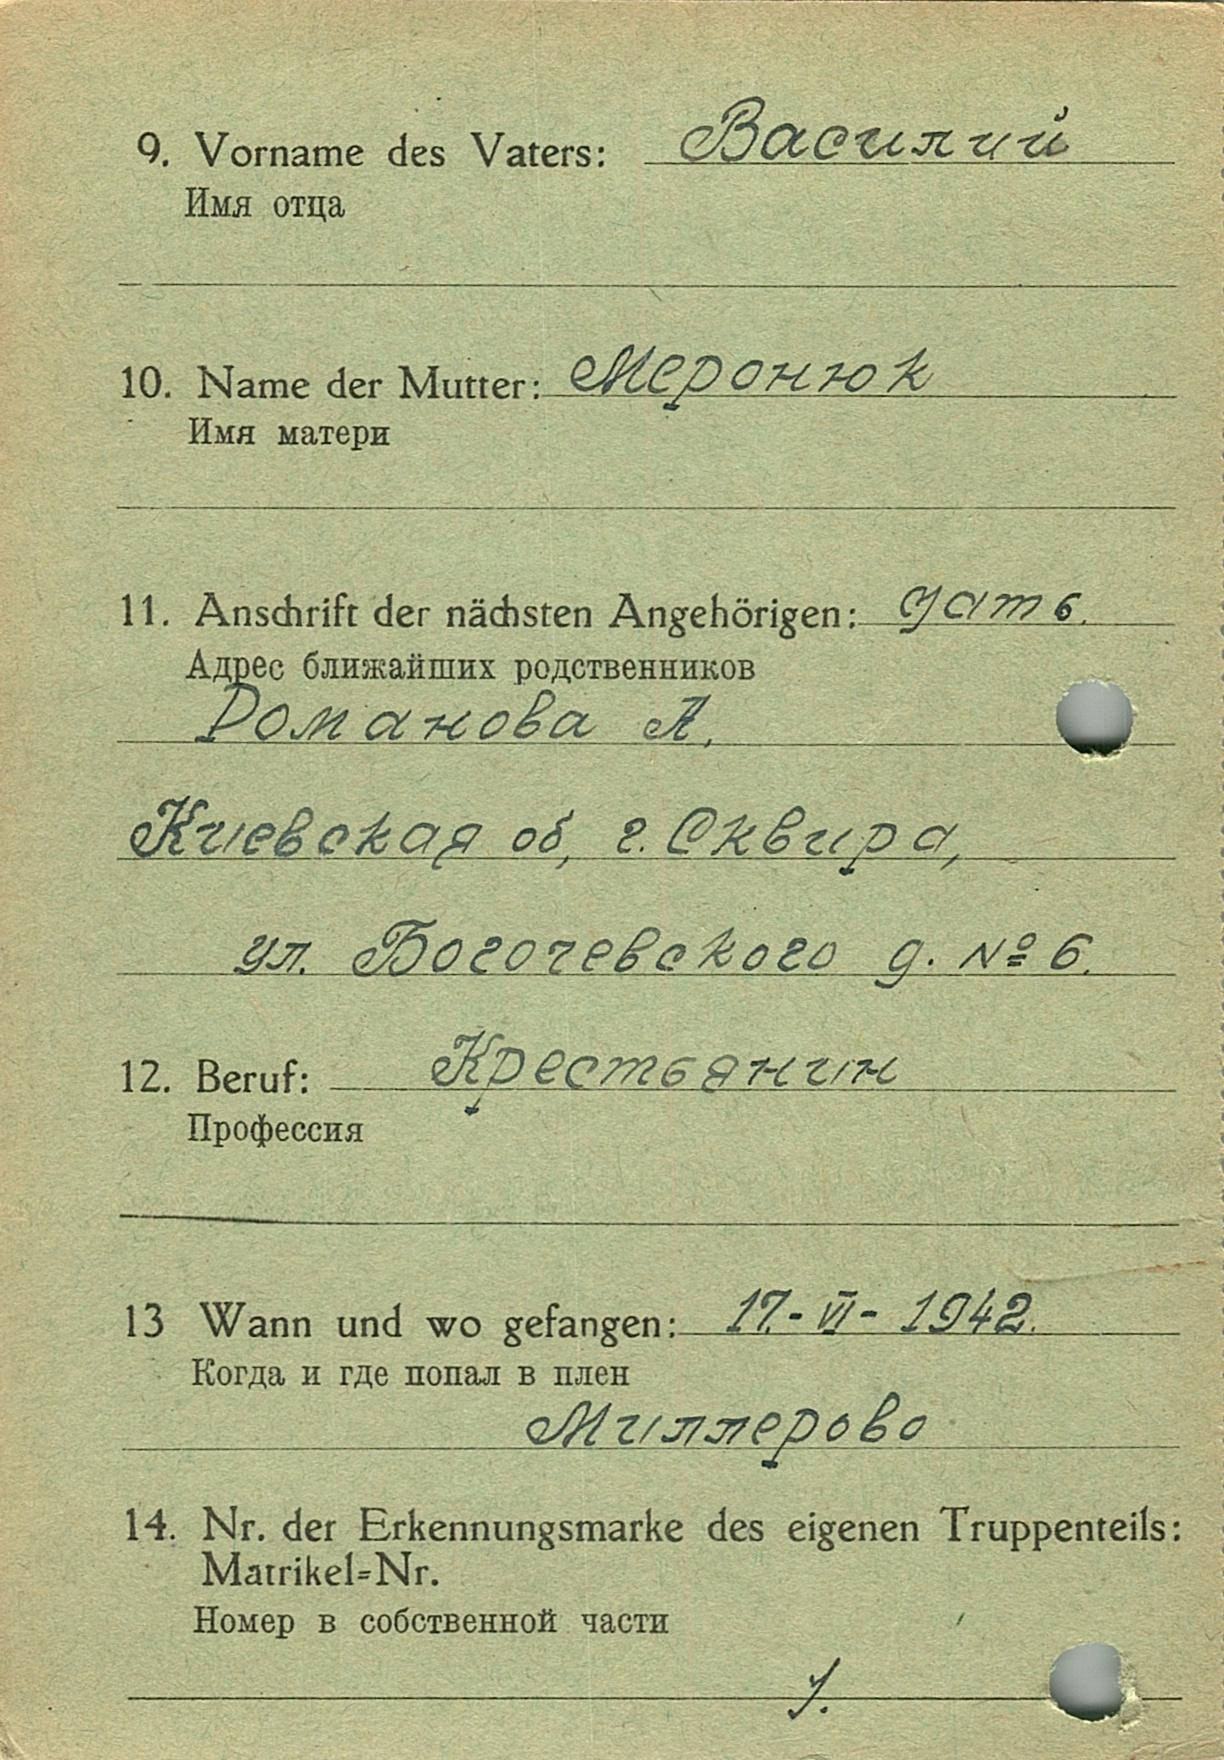 9. Vorname des Vaters: Василий
Имя отца
10. Name der Mutter: Меронюк
Имя матери
11. Anschrift der nächsten Angehörigen:
Адрес ближайших родственников
Романова А,
Киевская об, г. Сквира,
ул. Богочевского д. № 6.
12. Beruf: Крестьянин
Профессия
13 Wann und wo gefangen: 17.-VI-1942.
Когда и где попал в плен
Миллерово
14. Nr. der Erkennungsmarke des eigenen Truppenteils:
Matrikel=Nr.
Номер в собственной части